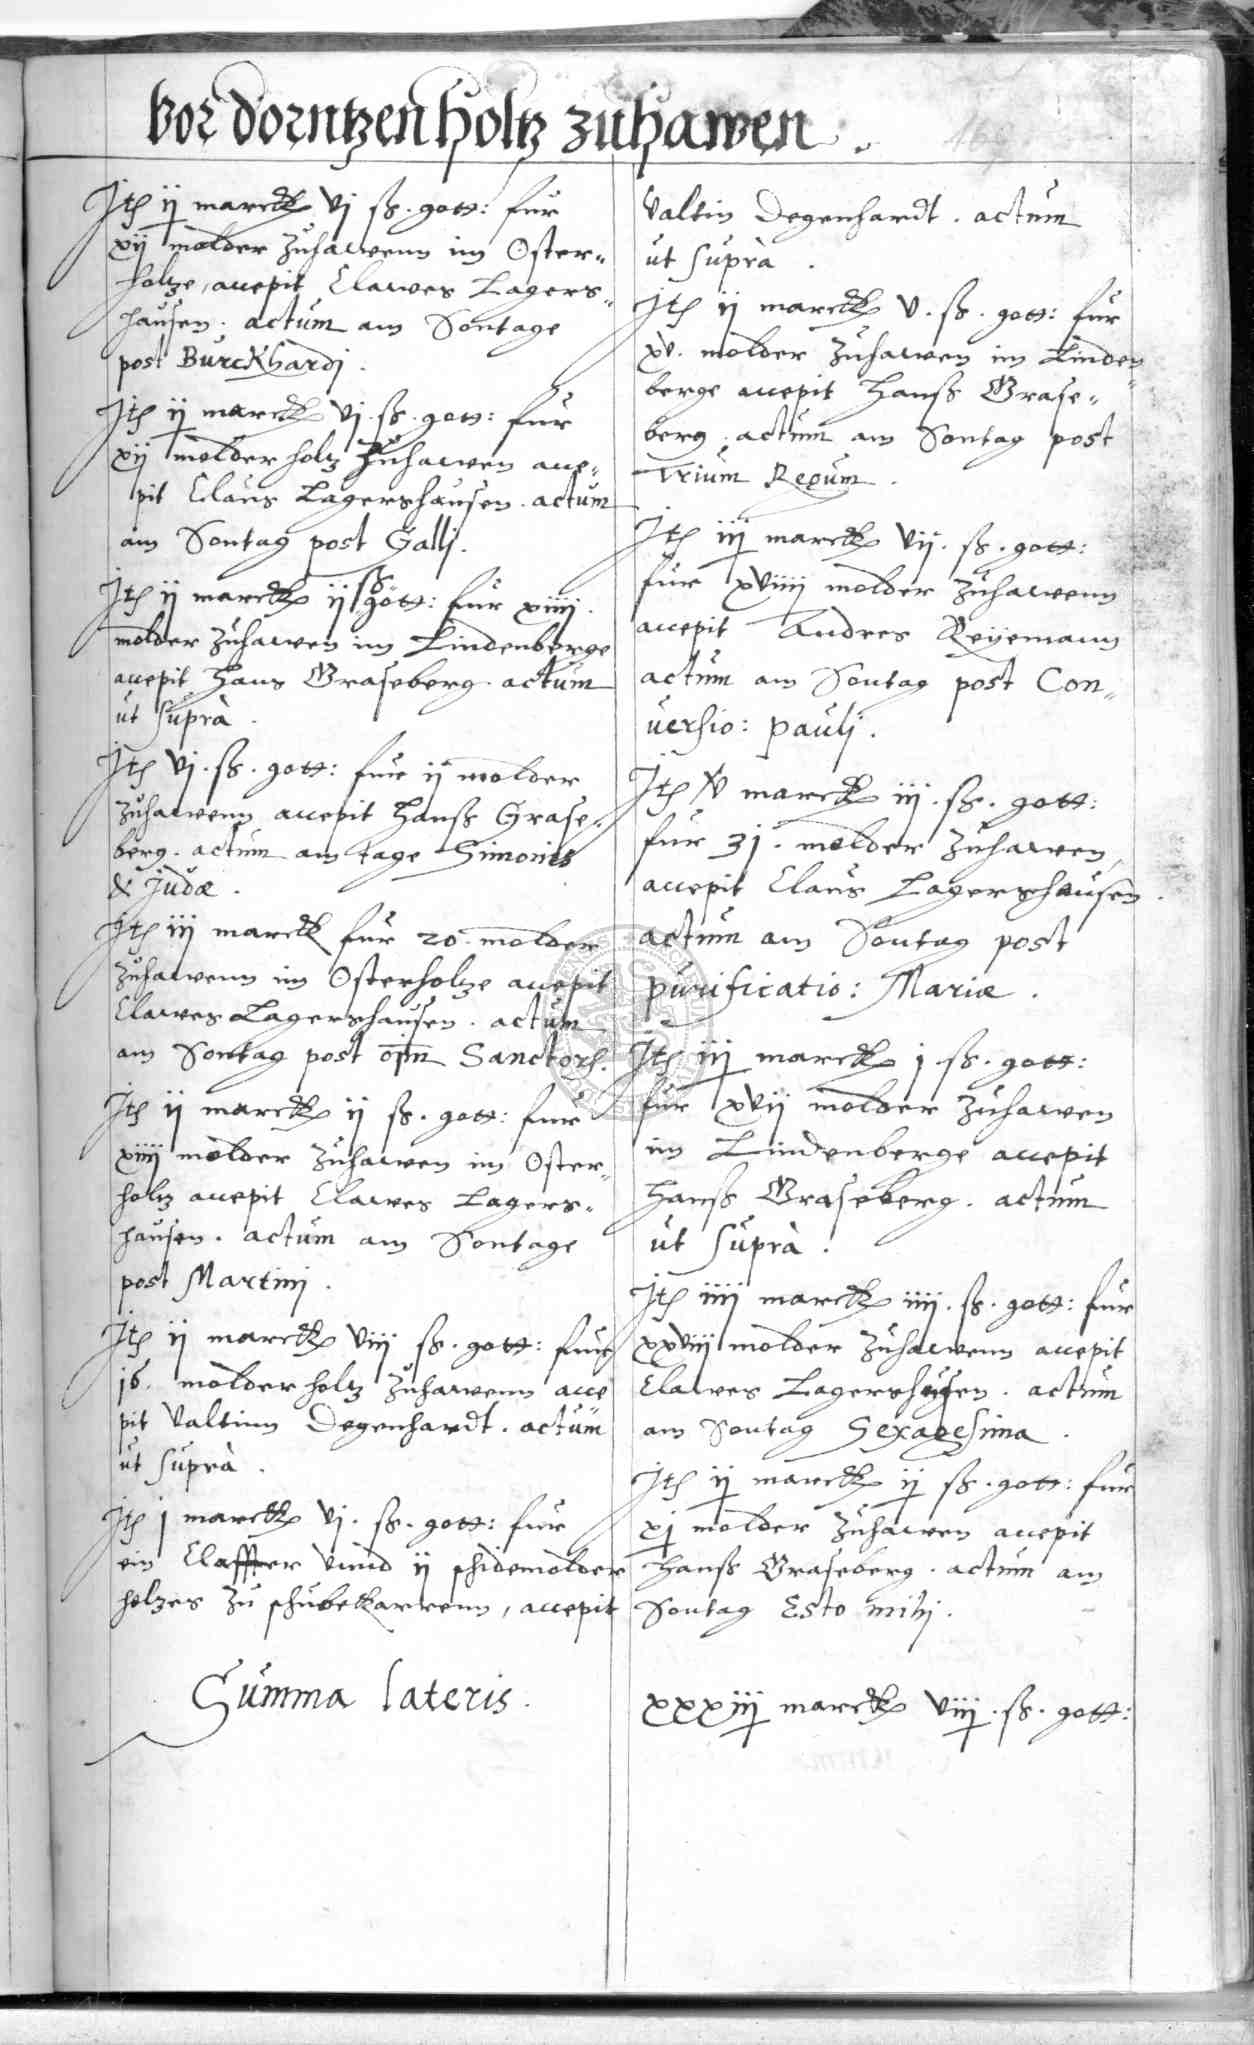 Vor dorntzen holtz zuhawen .
Jtem ij marck vj ß. gott: fur
xij molder zuhawenn im Oster„
holtze, accepit Clawes Lagers„
hausen. actum am Sontage
post Burckhardj .
Jtem ij marck vj. ß. gott: fur
xij molder holtz zuhawen acce„
pit Claus Lagershausen . actum
am Sontag post Gallj.
Jtem ij marck ij ß gott: fur xiiij .
molder zuhawen im Lindenberge
accepit Hans Graseberg. actum
ut suprà .
Jtem vj. ß. gott: fur ij molder
zuhawenn accepit Hanß Grase„
berg. actum am tage Simonis
& Judæ .
Jtem iij marck fur 20 molder
zuhawenn im Osterholtze accepit
Clawes Lagershausen . actum
am Sontag post om̄ Sanctorum.
Jtem ij marck ij ß. gott: fur
xiiij molder zuhawen im Oster„
holtz accepit Clawes Lagers„
hausen. actum am Sontage
post Martinj .
Jtem ij marck viij ß. gott: fur
16. molder holtz zuhawenn acce
pit Valtinn Degenhardt. actum
ut suprà .
Jtem j marck vj. ß. gott: fur
ein Claffter vnnd ij schidemolder
holtzes zu schubekarrenn, accepit
Valtin Degenhardt . actum
ut suprà .
Jtem ij marck v. ß. gott: fur
xv. molder zuhawen im Linden„
berge accepit Hanß Grase„
berg. actum am Sontag post
Trium Regum .
Jtem iij marck vij. ß. gott:
fur xviiij molder zuhawenn
accepit Andres Reyemann
actum am Sontag post Con„
uersio: Paulj .
Jtem v marck iij. ß. gott:
fur 31. molder zuhawen,
accepit Claus Lagershausen .
actum am Sontag post
purificatio: Mariæ .
Jtem iij marck j ß. gott:
fur xvij molder zuhawen
im Lindenberge accepit
Hanß Graseberg. actum
ut suprà .
Jtem iiij marck iiij. ß. gott: fur
xxviij molder zuhawenn accepit
Clawes Lagershausen . actum
am Sontag Sexagesima .
Jtem ij marck ij ß. gott: fur
xj molder zuhawen accepit
Hanß Graseberg. actum am
Sontag Esto mihj .
Summa lateris .
xxxiij marck viij. ß. gott: